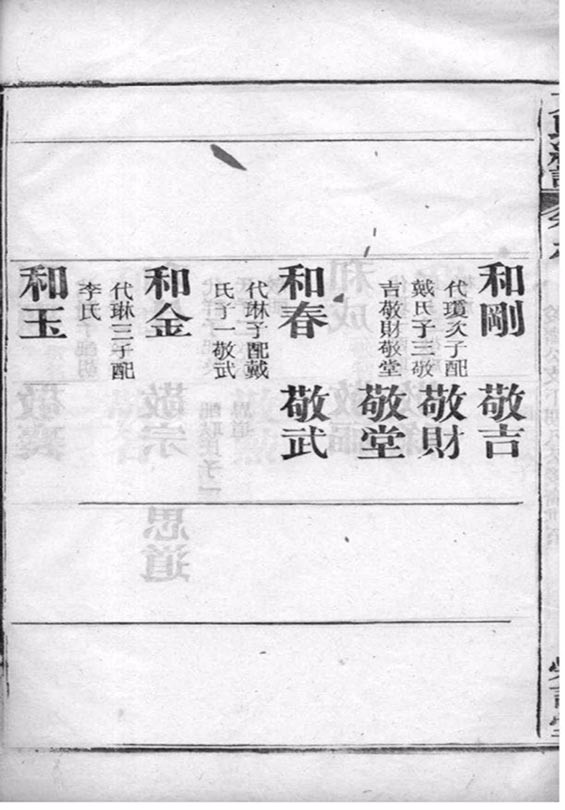 和剛
代瓊次子配
戴氏子三敬
吉敬財敬堂
敬吉
敬財
敬堂
和春
代琳子配戴
氏子一敬武
敬武
和金
代琳三子配
李氏
和玉